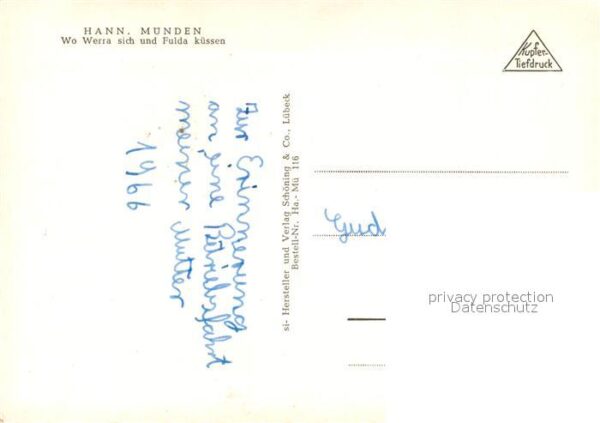 HANN. MÜNDEN
Wo Werra sich und Fulda küssen
Kupfer-
Tiefdruck
Zur Erinnerung
an eine Betriebsfahrt
meiner Mutter
1966
si- Hersteller und Verlag Schöning & Co., Lübeck
Bestell-Nr. Ha.-Mü 116
Gud
privacy protection
Datenschutz